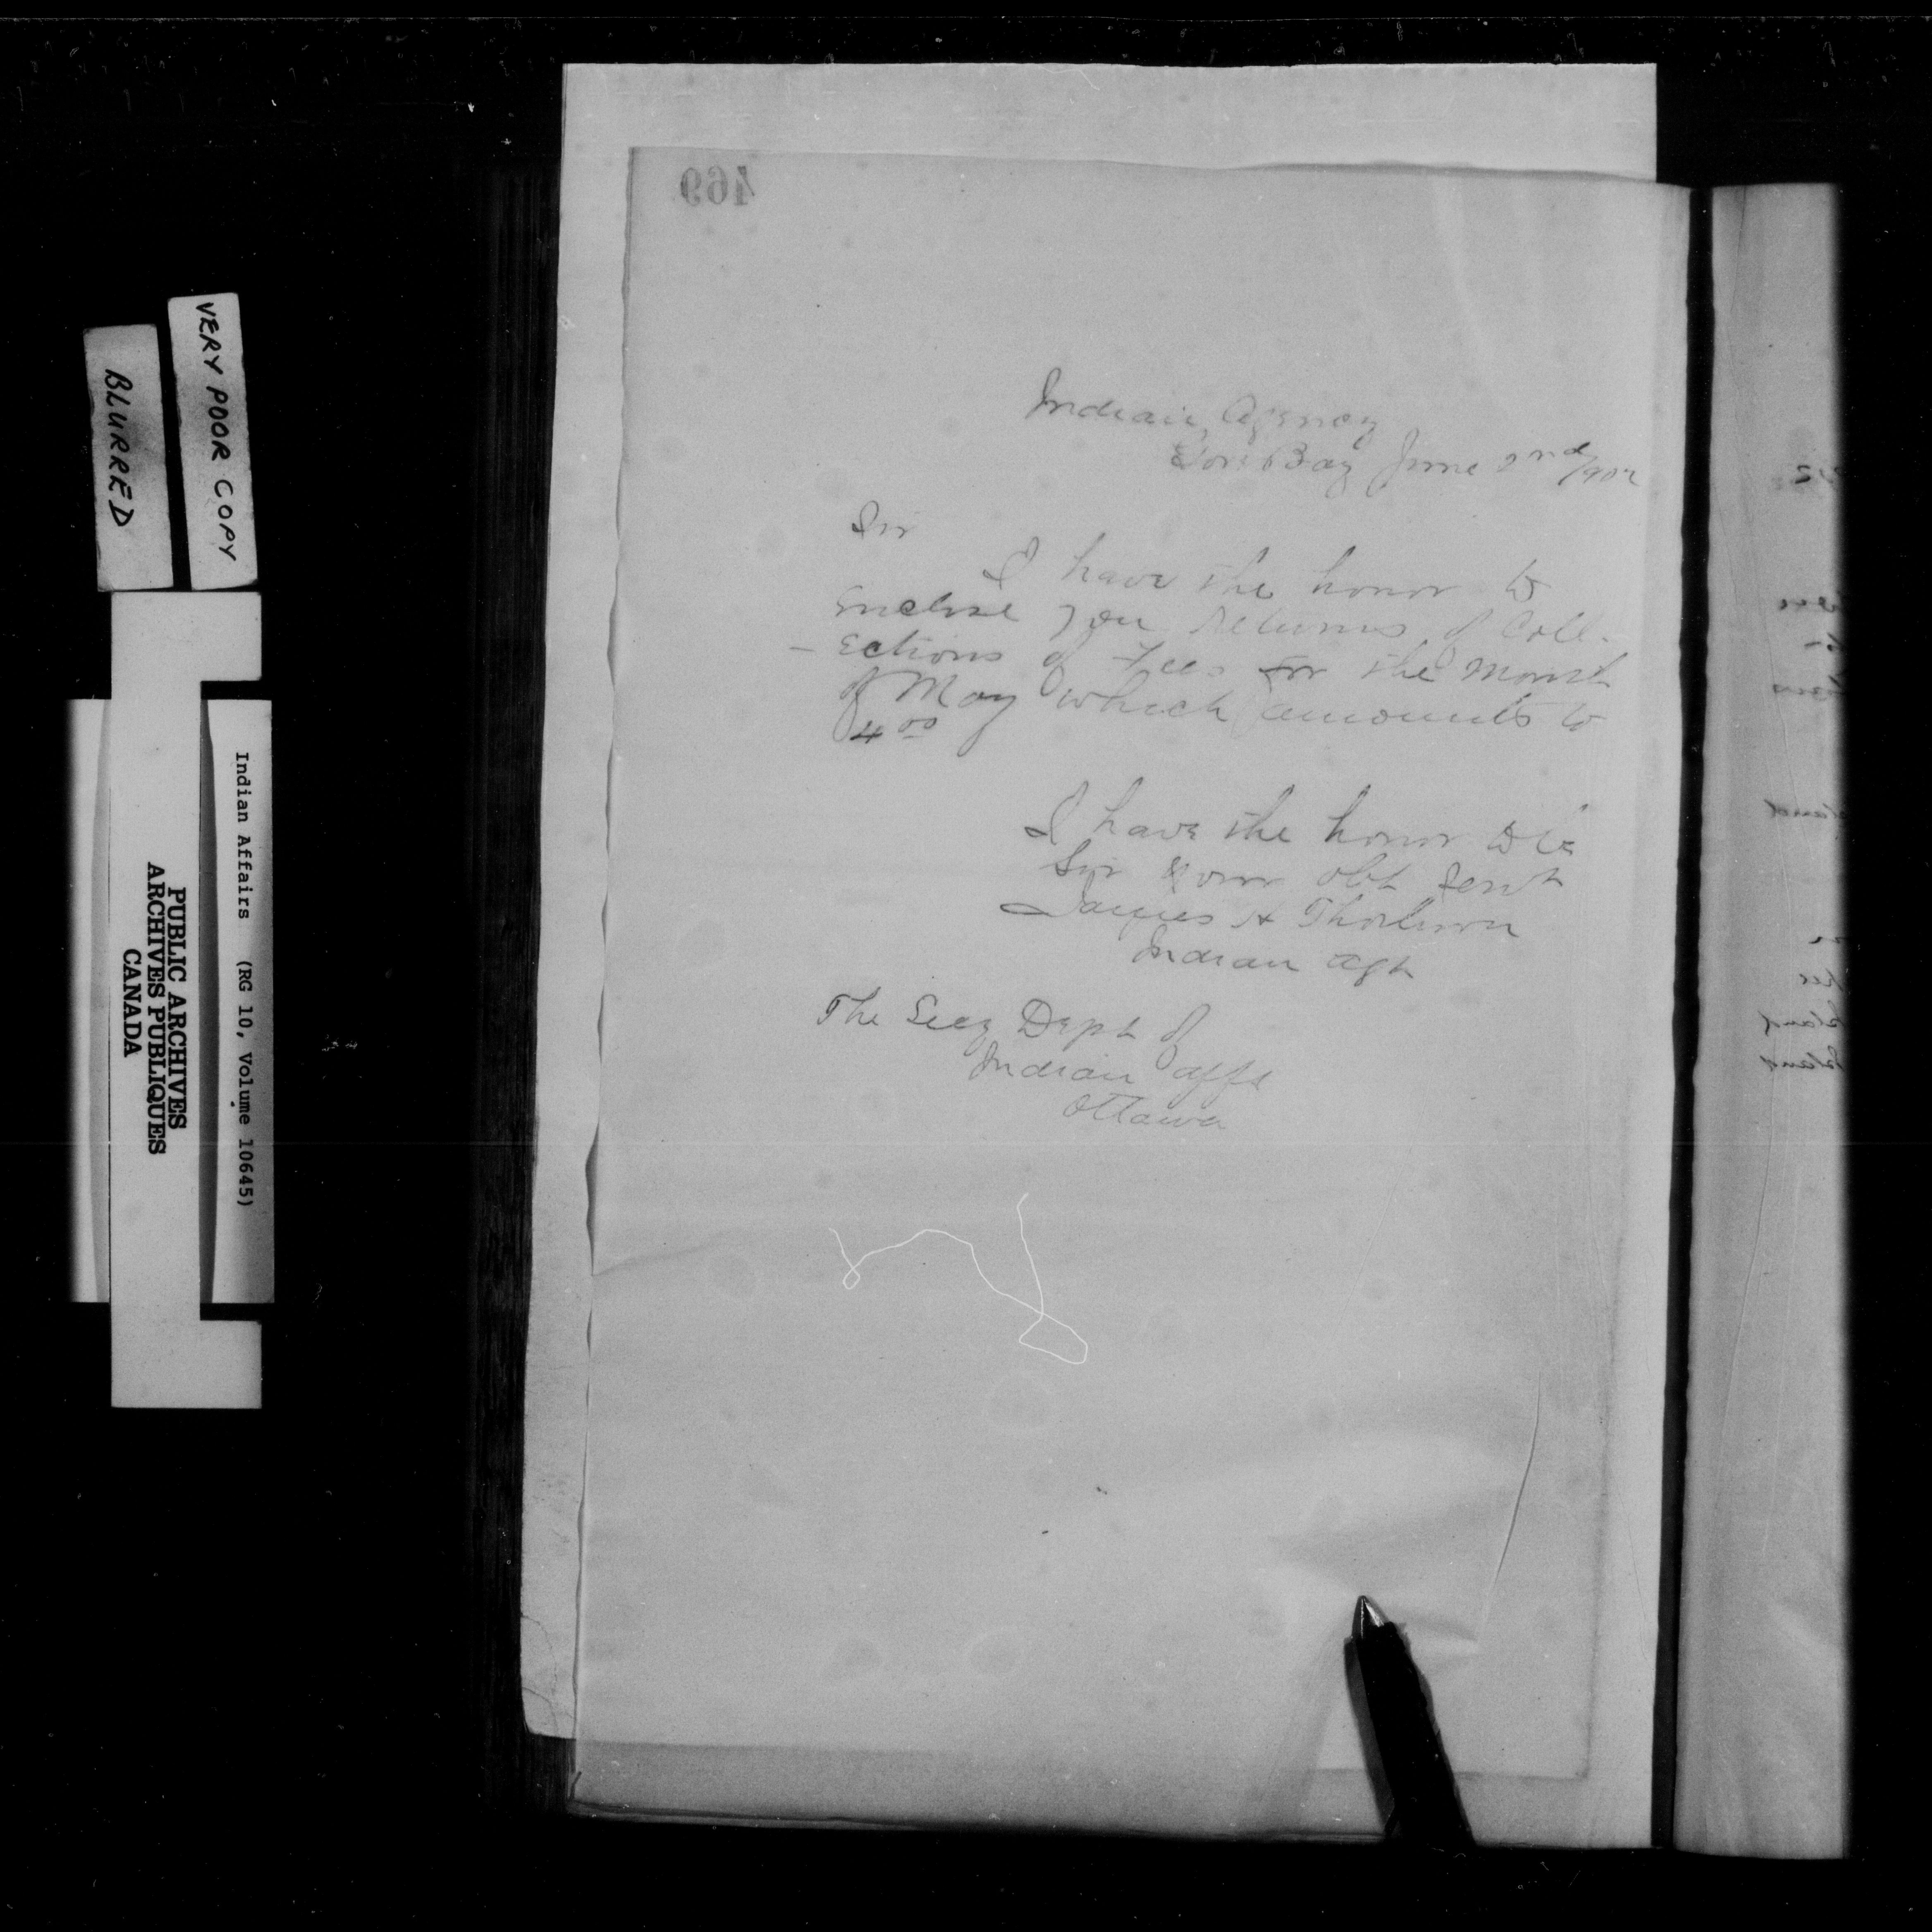 469
Indian Agency
Gore Bay June 2nd/902
Sir
I have the honor to
Enclose you Returns of Coll-
-ections of Fees for the Month
of May which amounts to
4 00
I have the honor to be
Sir your obt Servt
James H Thorburn
Indian Agt
The Secy Dept of
Indian Affs
Ottawa
VERY POOR COPY
BLURRED
Indian Affairs (RG 10, Volume 10645)
PUBLIC ARCHIVES
ARCHIVES PUBLIQUES
CANADA